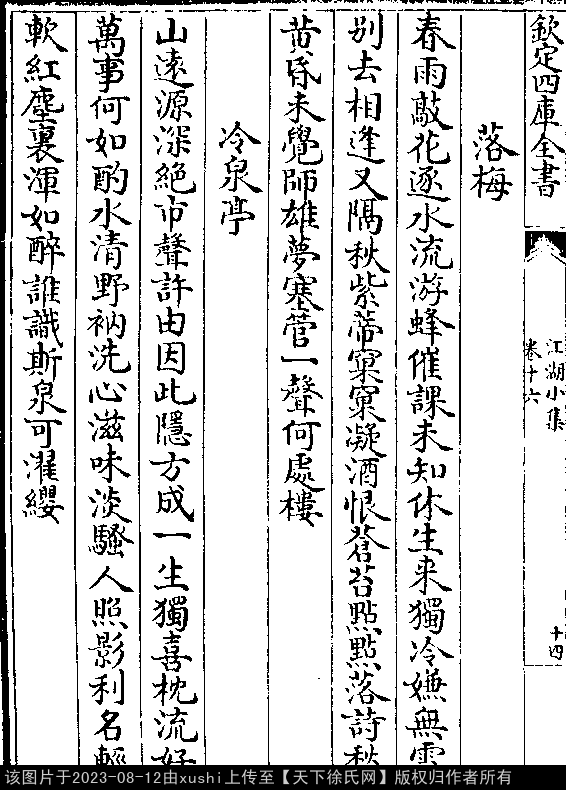 欽定四庫全書
江湖小集
卷十六
十四
落梅
春雨敲花逐水流游蜂催課未知休生来獨冷嫌無
别去相逢又隔秋紫蒂窠窠凝酒恨蒼苔點點落詩
黄昏未覺師雄夢塞管一聲何處樓
冷泉亭
山遠源深絶市聲許由因此隱方成一生獨喜枕流好
萬事何如酌水清野衲洗心滋味淡騷人照影利名輕
軟紅塵裏渾如醉誰識斯泉可濯纓
该图片于2023-08-12由xushi上传至【天下徐氏网】版权归作者所有